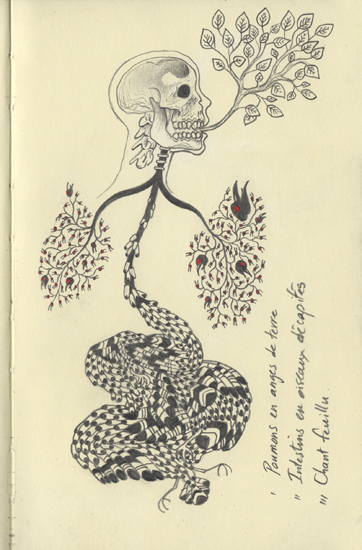 ' Poumons en anges de terre
" Intestins en oiseaux décapités
"' Chant feuillu.